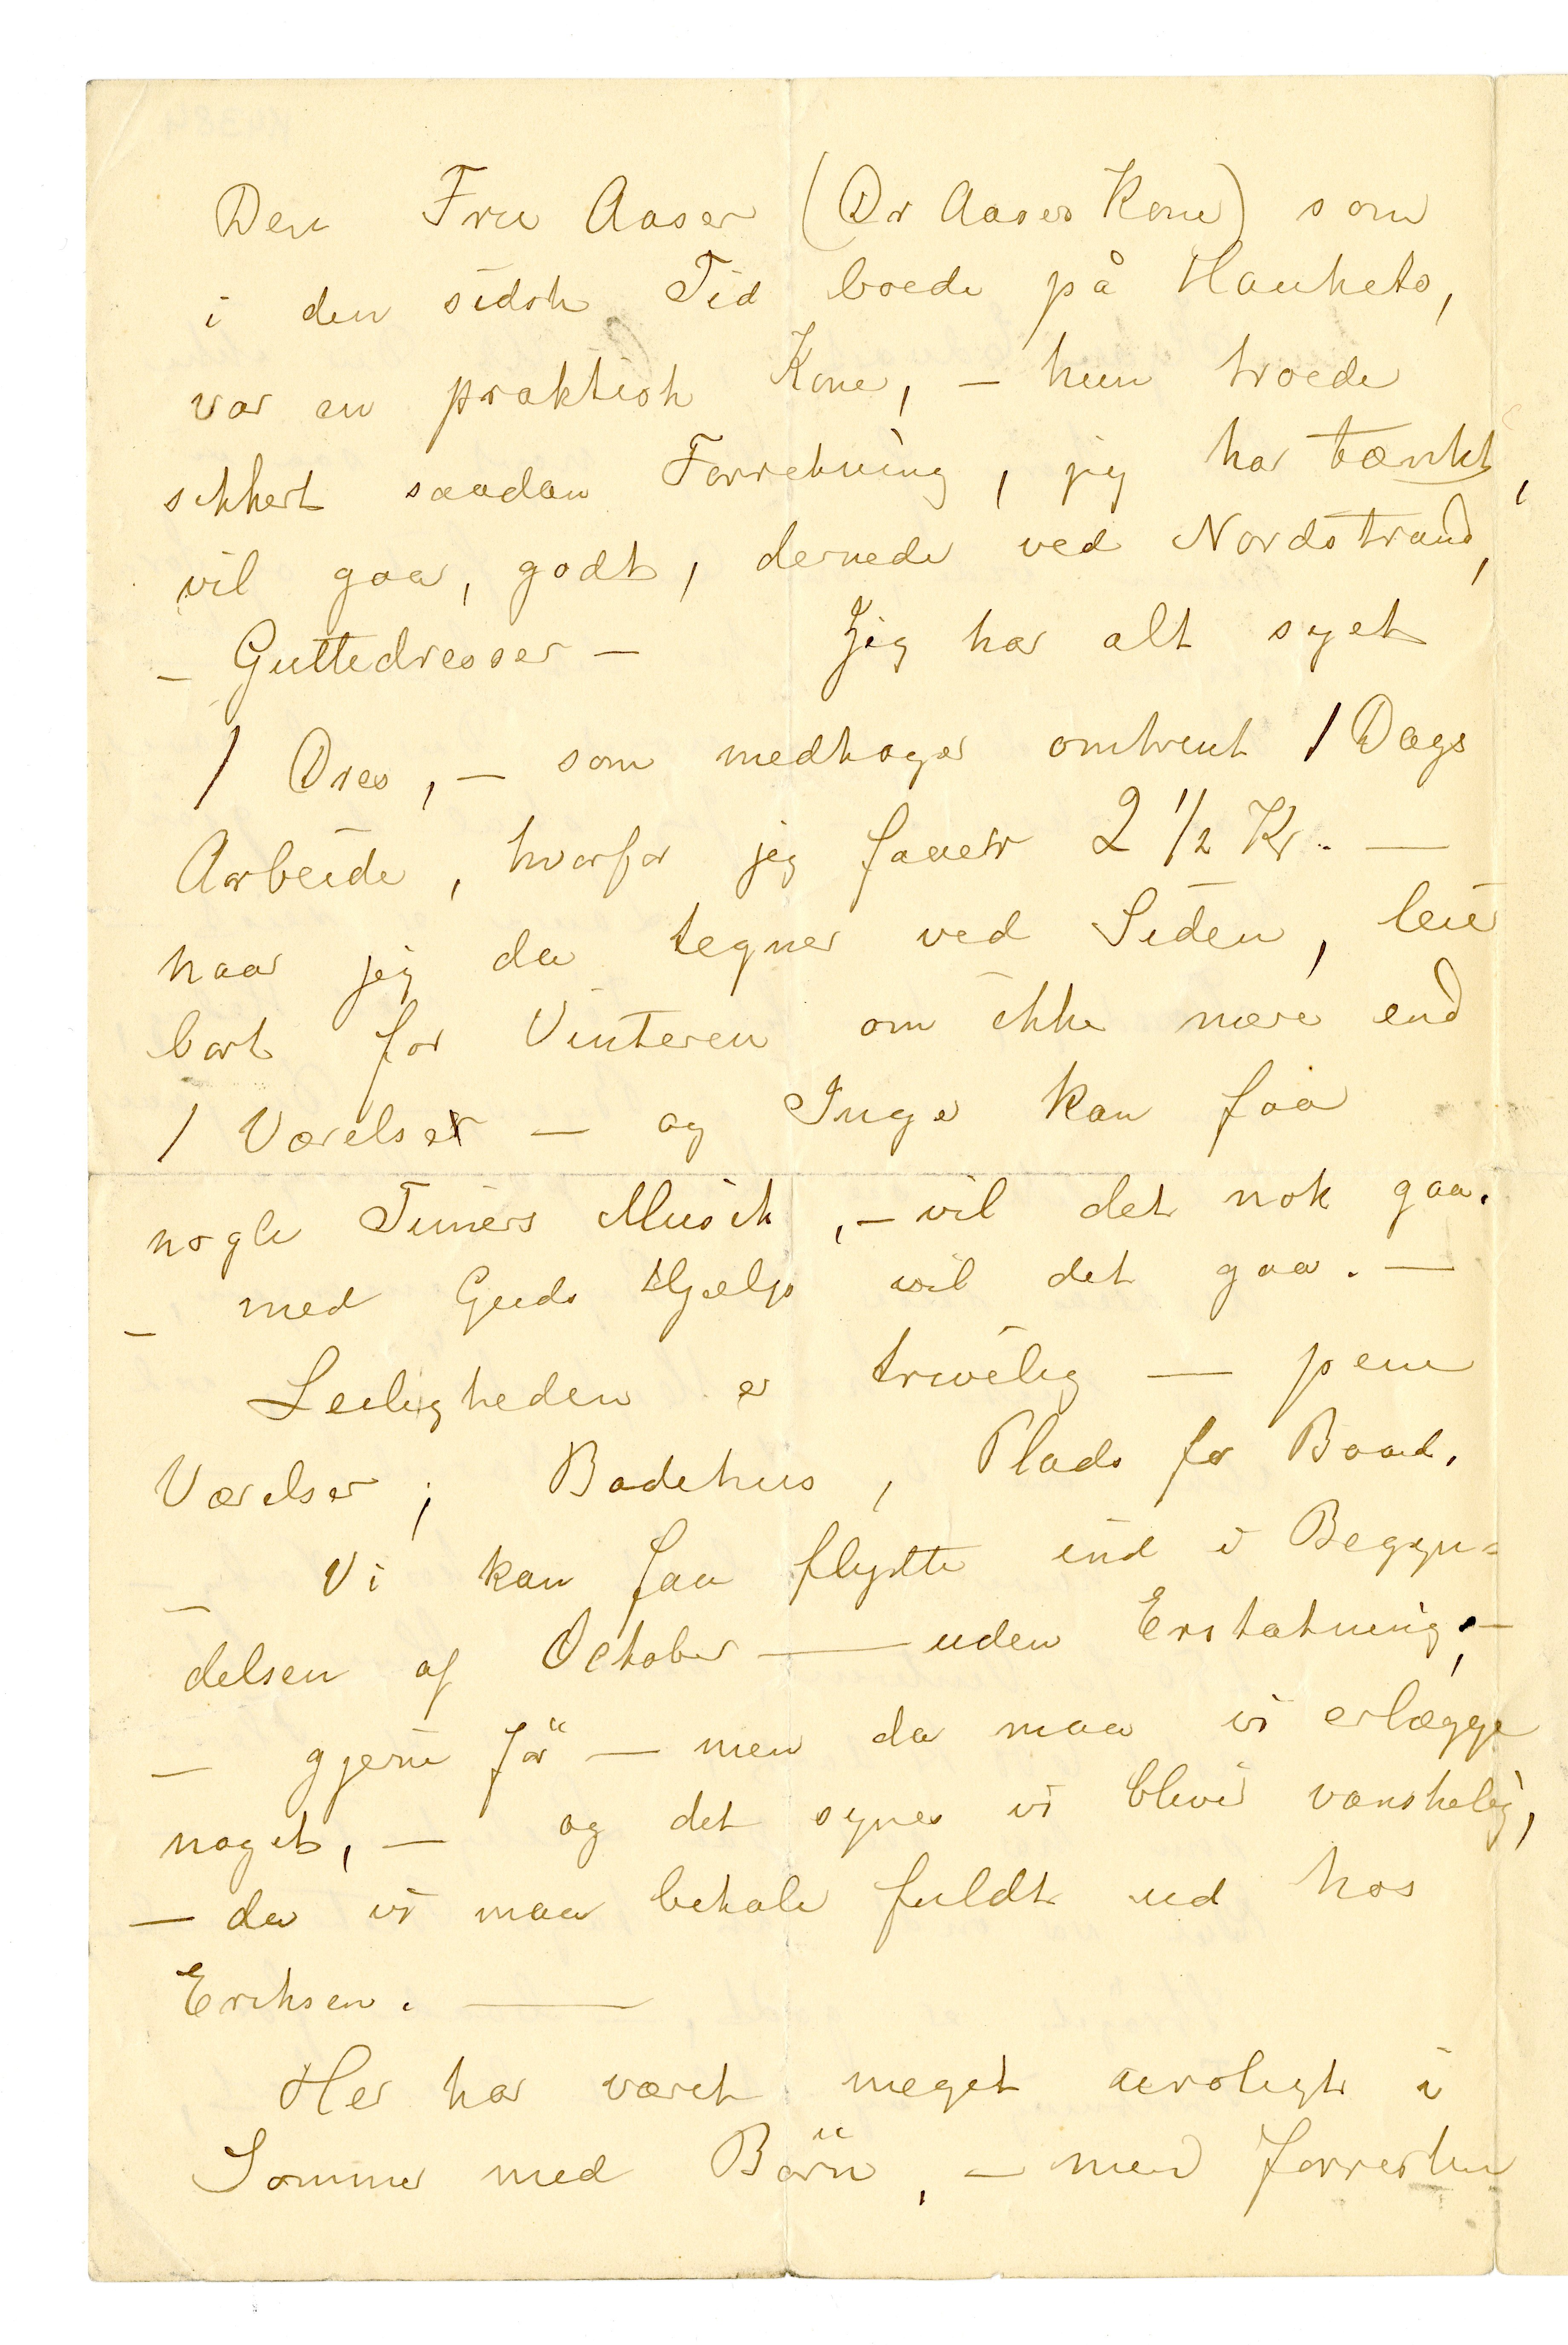 Den Fru Aaser (Dr Aases Kone) som
i den sidste Tid boede på Hauketo,
var en praktisk Kone, – hun troede
sikkert saadan Forretning, jeg har tænkt,
vil gaa, godt, dernede ved Nordstrand,
– Guttedresser – Jeg har alt syet
1 Dres, – som medtager omtrent 1 Dags
Arbeide, hvorfor jeg faaer 2 1/2 Kr. —
naar jeg da tegner ved Siden, leier
bort for Vinteren om ikke mere end
1 Værelse – og Inger kan faa
nogle Timers Musik, – vil det nok gaa.
– med Guds Hjælp vil det gaa. —
Leiligheden er trivelig — pene
Værelser; Badehus, Plads for Baad.
– Vi kan faa flytte ind i Begyn=
delsen af October — uden Erstatning; –
– gjerne för — men da maa vi erlægge
noget, — og det synes vi bliver vanskelig,
— da vi maa betale fuldt ud hos
Eriksen. —
Her har været meget uroligt i
Sommer med Börn, – men forresten